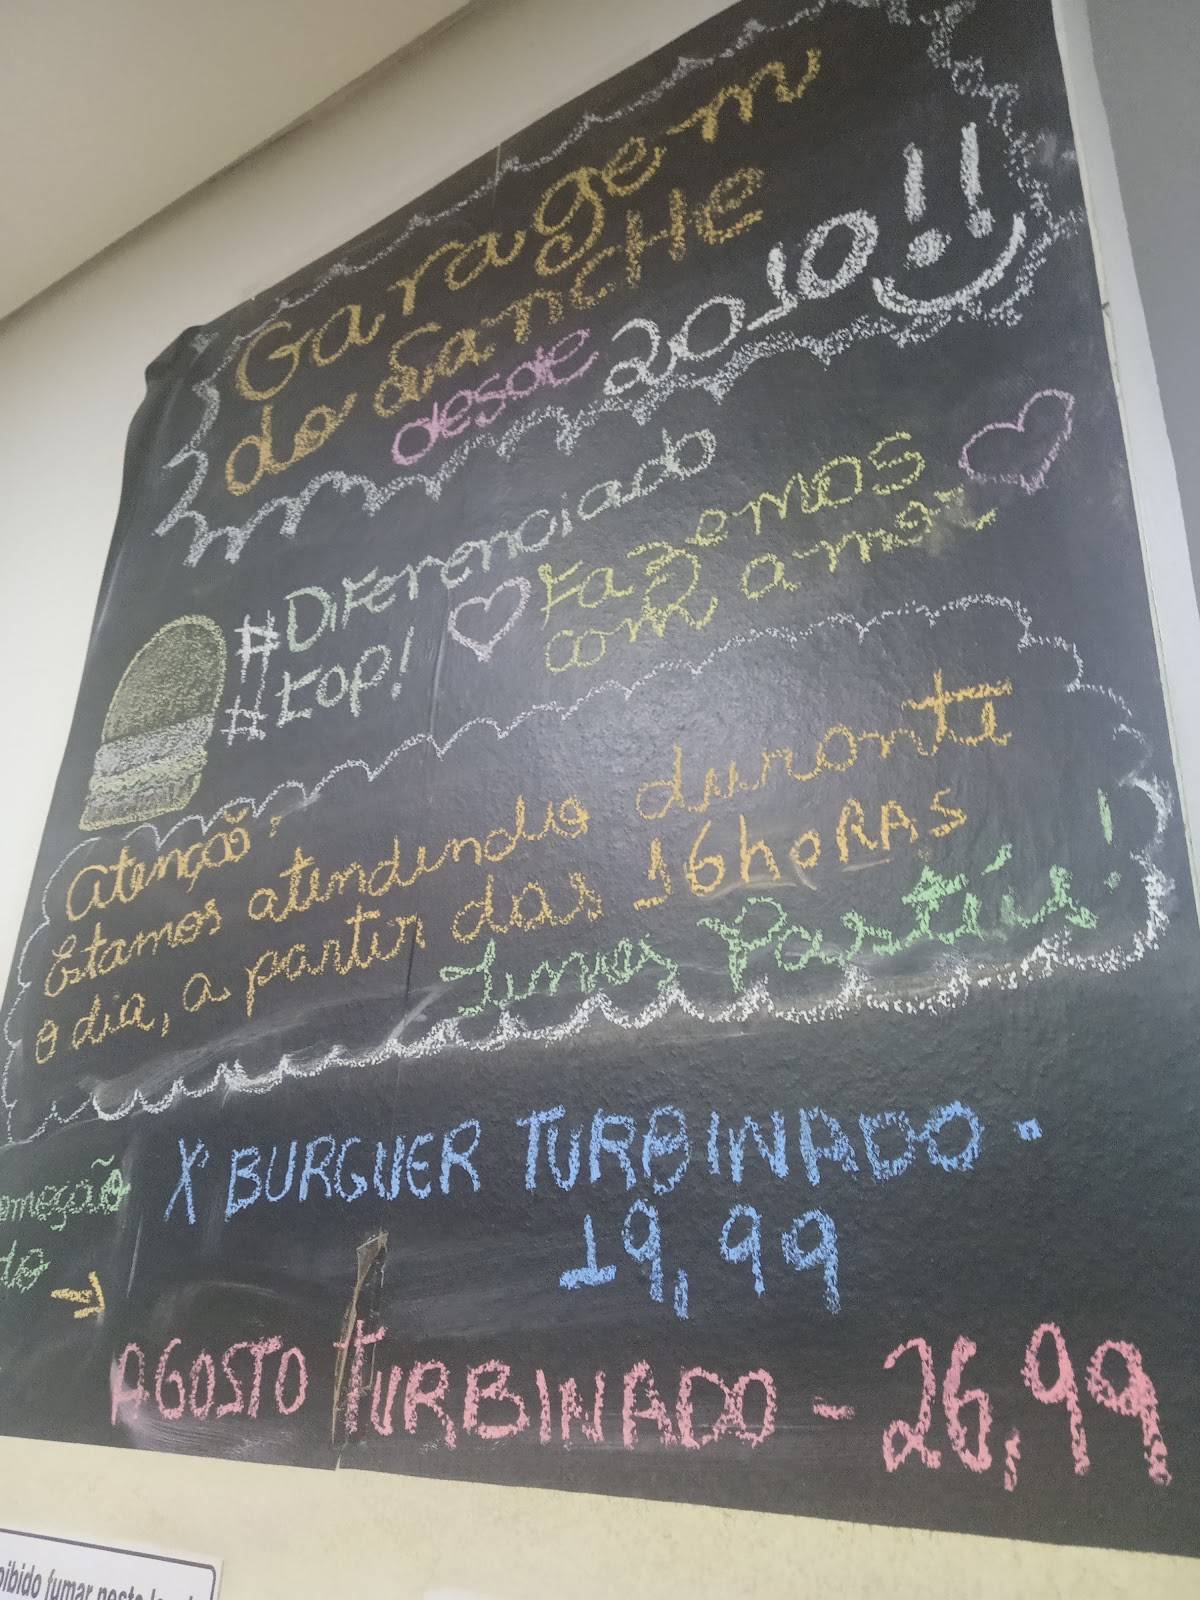 Garagem
do SancHE
desde 2010!!
#DiFerenciado
#top!
Fazemos
com amor
Atenção:
Estamos atendendo durante
o dia, a partir das 16hoRAS
X' BURGUER TURBINADO.
19,99
AGOSTO TURBINADO - 26,99